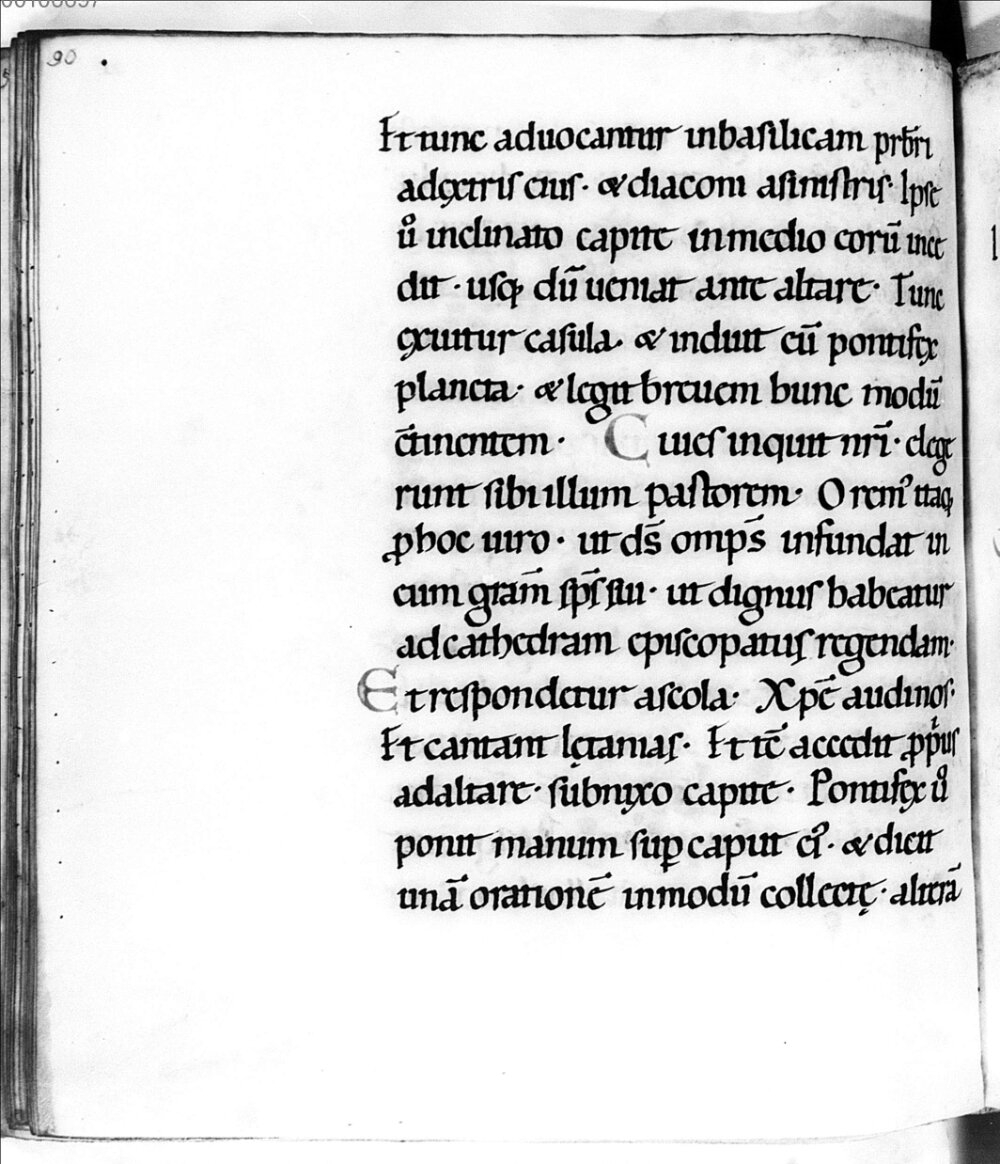 90
Et tunc aduocantur inbasilicam prb̄ri
adęxtris eius· & diaconi asinistris· Ipse
ů inclinato capite inmedio eorū ince
dit· usq; dū ueniat ante altare· Tunc
ęxuitur casula· & induit cū pontifęx
planeta· & legit breuem hunc modū
c̄tinentem· Ciues inquit nr̄i· elege
runt sibi illum pastorem· Orem᾿ itaq;
ꝓ hoc uiro· ut ds̄ omps̄ infundat in
eum grām sp̄s sc̄i· ut dignus habeatur
ad cathedram episcopatus regendam·
Et respondetur ascola· Xp̄e audinos·
Et cantant lętanias· Et tc̄ accedit ꝓprius
adaltare· subnixo capite· Pontifęx ů
ponit manum suꝑ caput ei᾿· & dicit
unā orationē inmodū collectę· alterā